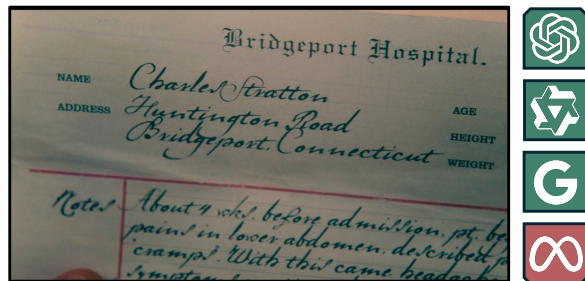 Bridgeport Hospital.
NAME Charles Stratton
ADDRESS Huntington Road
AGE
Bridgeport, Connecticut
HEIGHT
WEIGHT
Notes About 4 wks. before admission, pt. be
pains in lower abdomen, described
cramps. With this came headache
symptoms
G